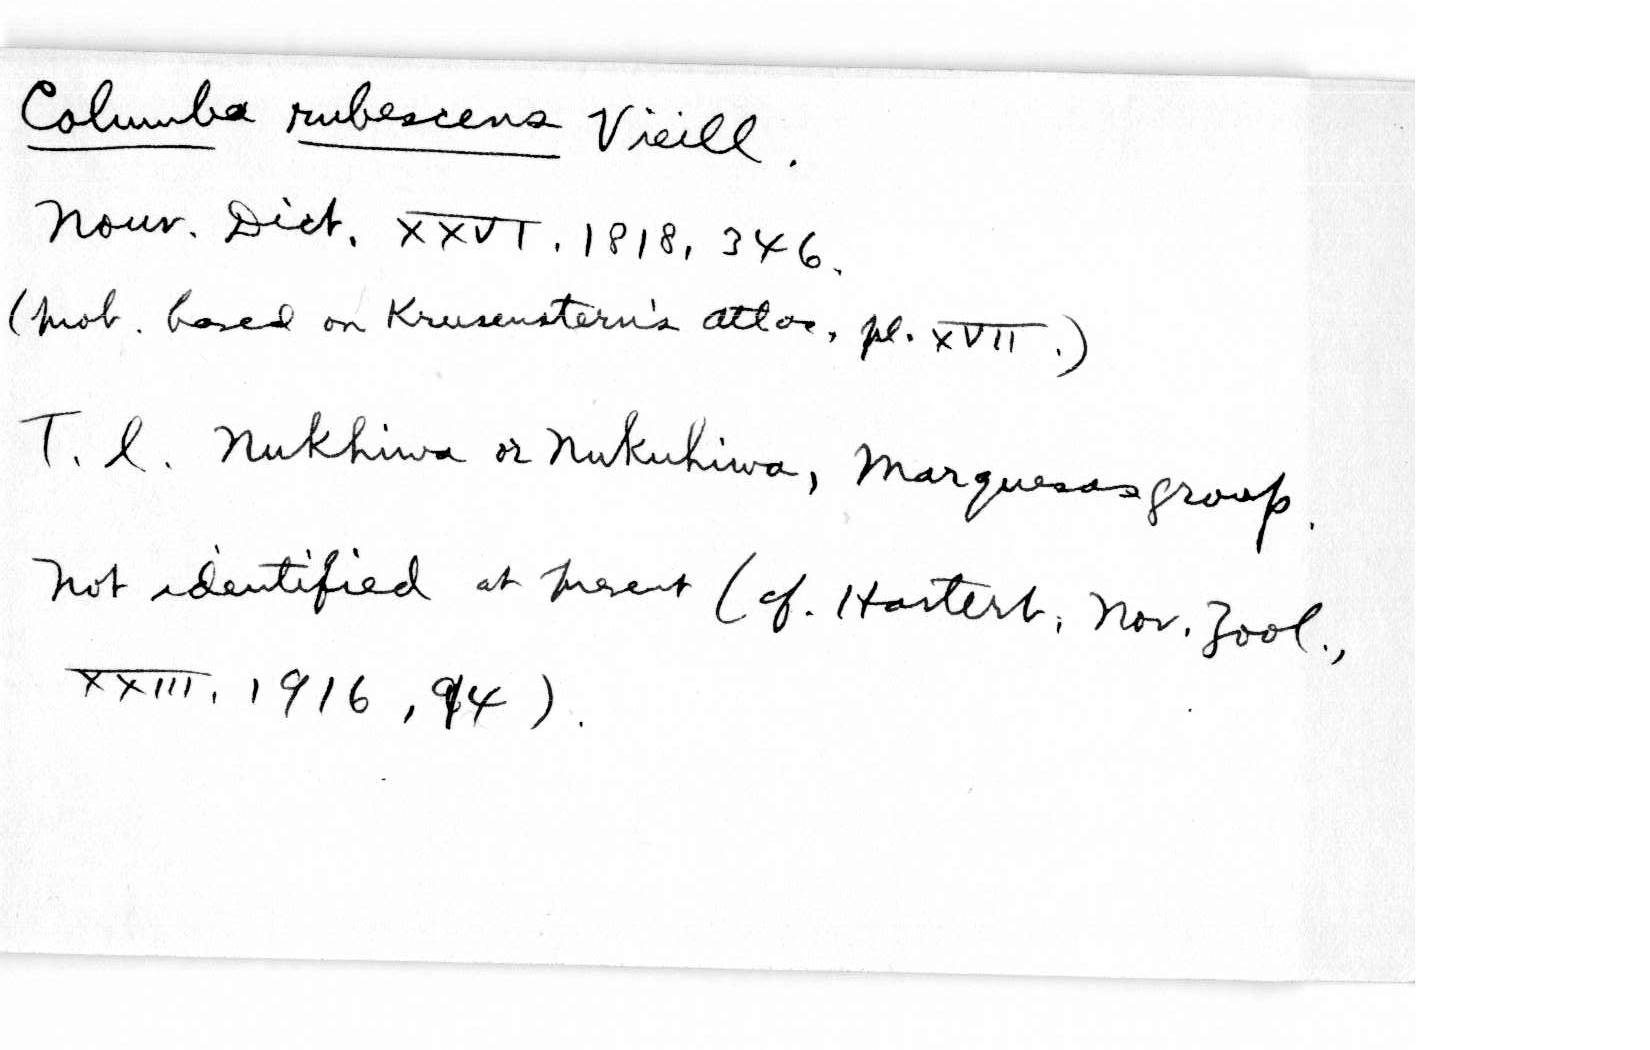 Columba rubescens Vieill.
Nouv. Dict. XXVI. 1818, 346.
(prob. based on Krusenstern's atlas, pl. XVII.)
T. l. Nukhiwa or Nukuhiwa, Marquesas group.
Not identified at present (cf. Hartert, Nov. Zool.,
XXIII. 1916, 94).